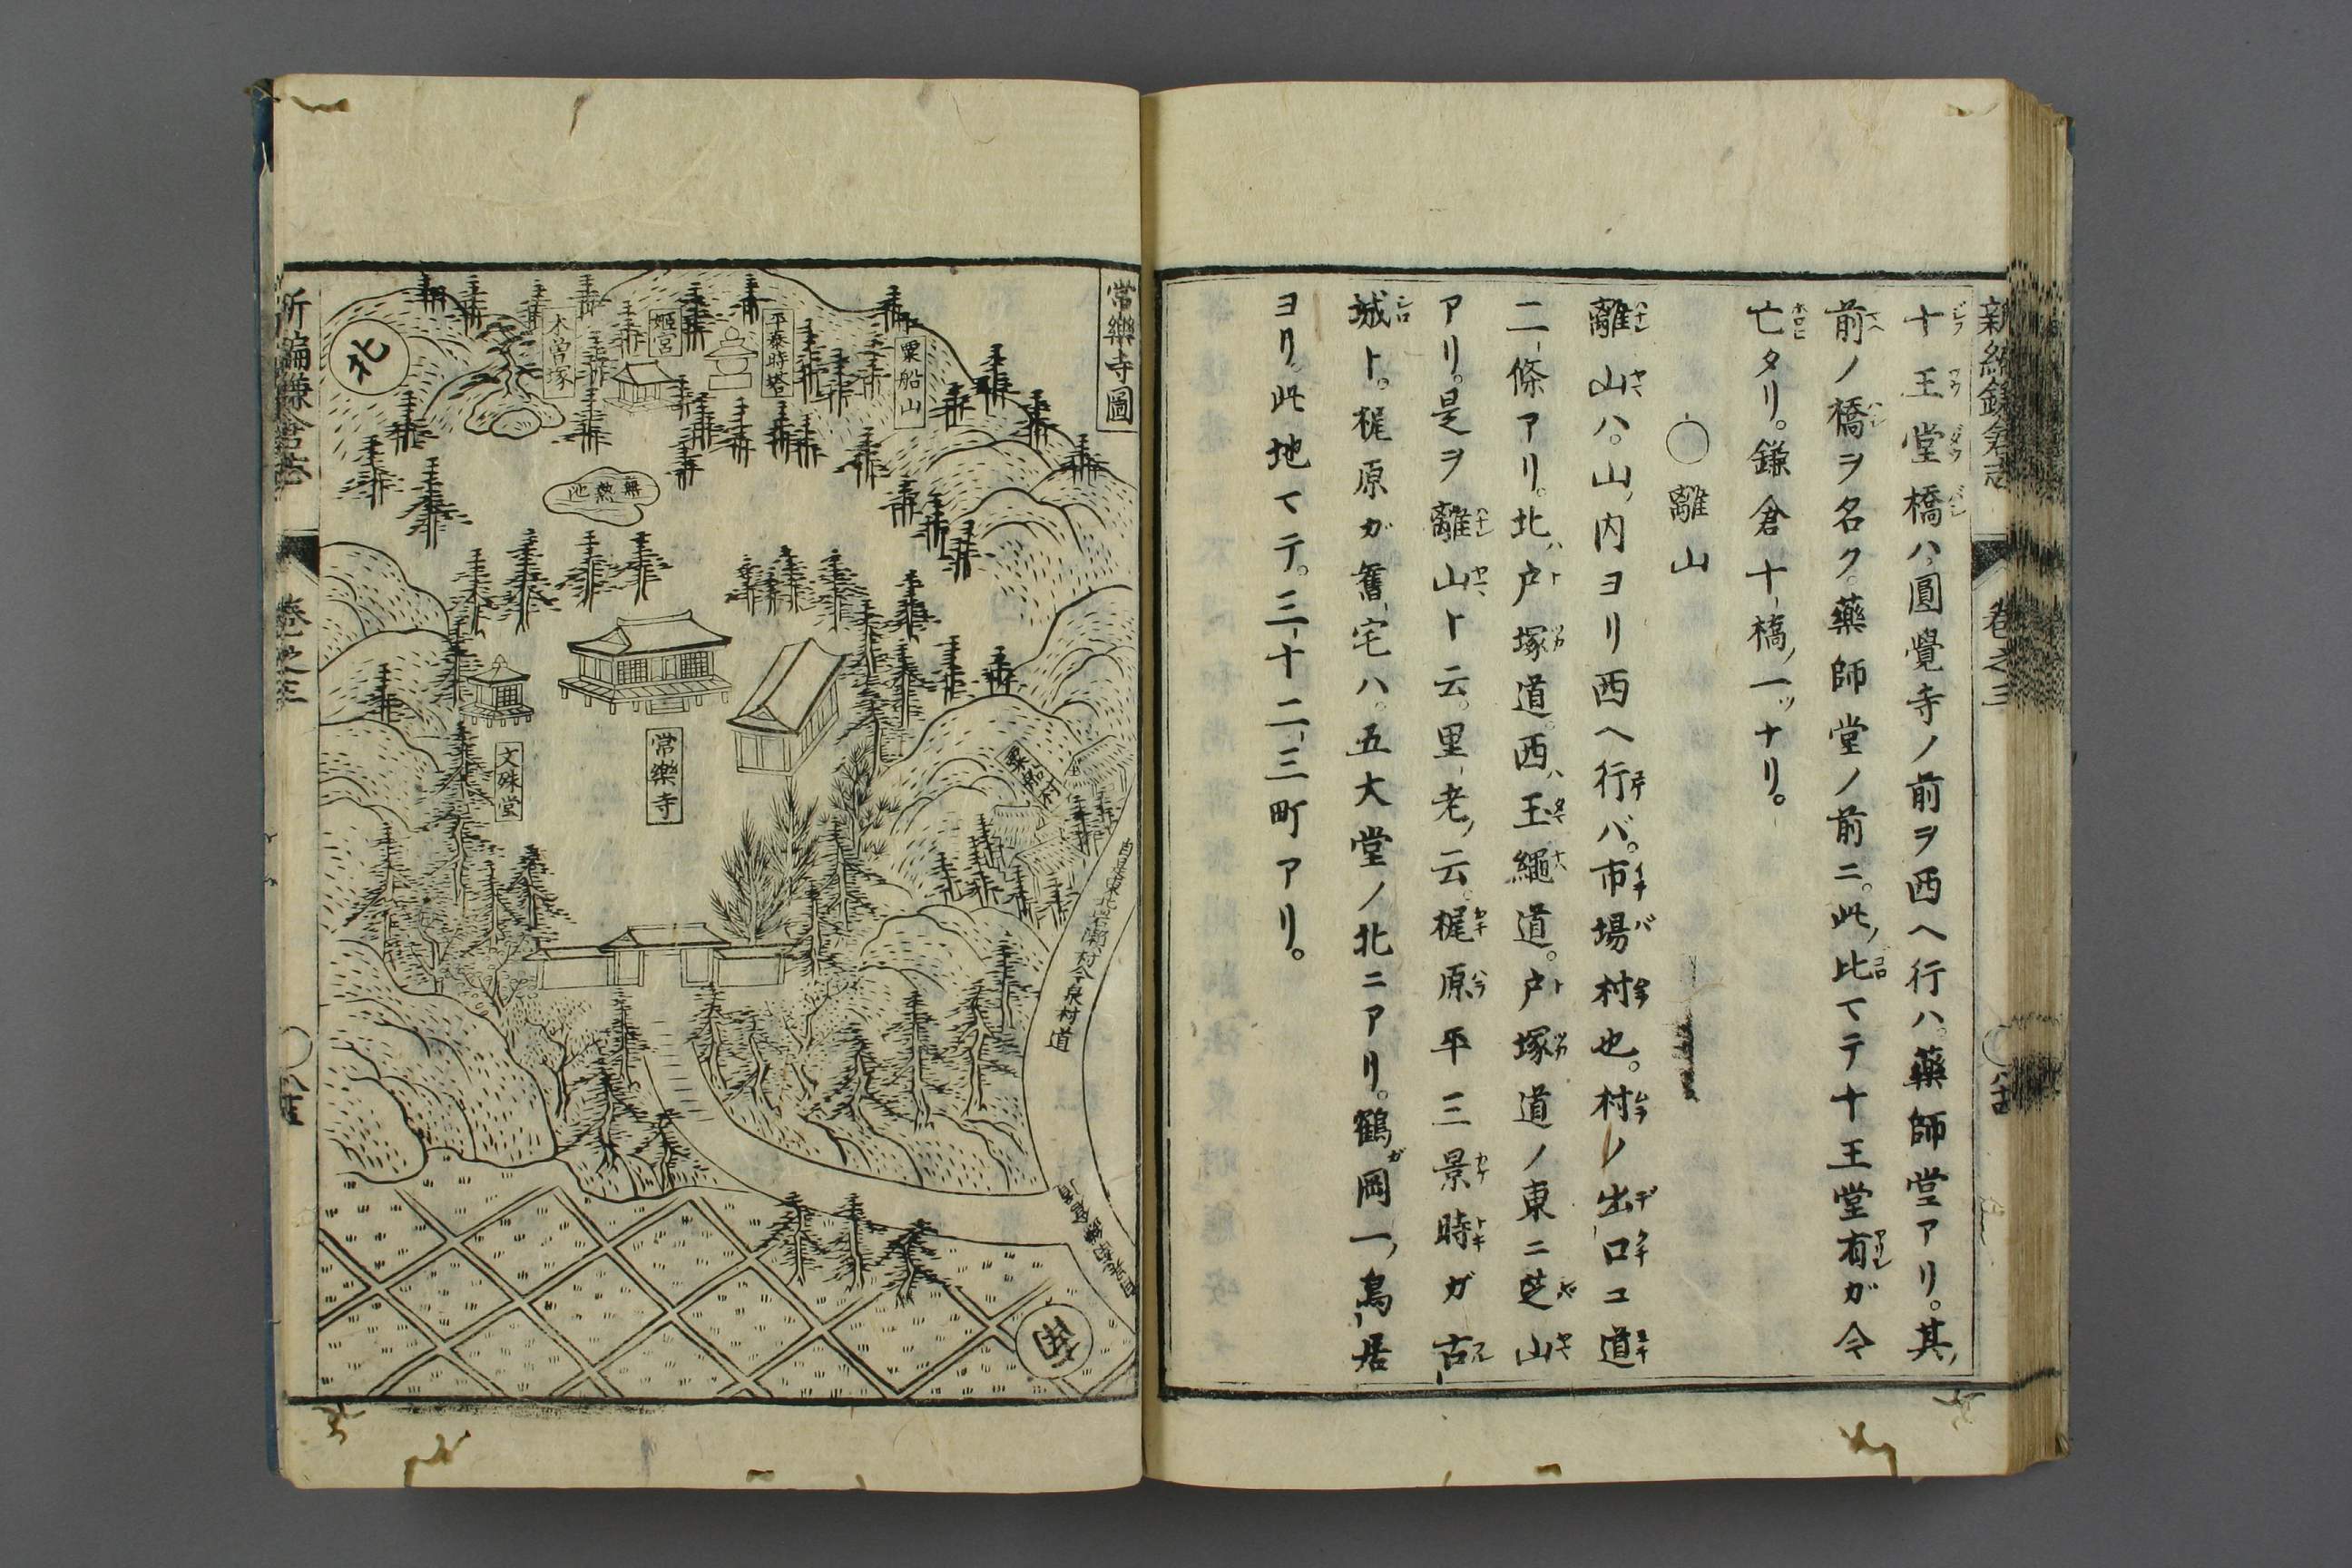 新編鎌倉志
巻之三
十王堂橋ハ、圓覺寺ノ前ヲ西ヘ行ハ。藥師堂アリ。其ノ
前ノ橋ヲ名ク。藥師堂ノ前ニ。此ノ比マテ十王堂有シガ今
亡タリ。鎌倉十橋ノ一ツナリ。
○離山
離山ハ。山ノ内ヨリ西ヘ行バ。市場村也。村ノ出口ニ道
二條アリ。北ハ戸塚道。西ハ玉繩道。戸塚道ノ東ニ芝山
アリ。是ヲ離山ト云。里老ノ云。梶原平三景時ガ古
城ト。梶原ガ舊宅ハ。五大堂ノ北ニアリ。鶴岡一ノ鳥居
ヨリ。此地マテ。三十二三町アリ。
常樂寺圖
粟船山
平泰時塔
姬宮
木曽塚
北
無熱池
文殊堂
常樂寺
粟船村
自是東北岩瀬村今泉村道
南
新編鎌倉志
巻之三